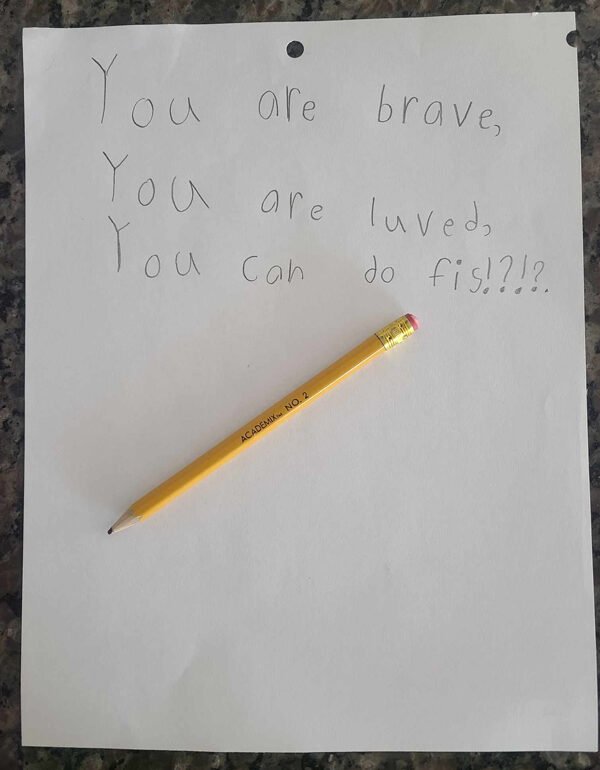 You are brave,
You are luved,
You can do fis!?!?.
ACADEMIX™ NO. 2